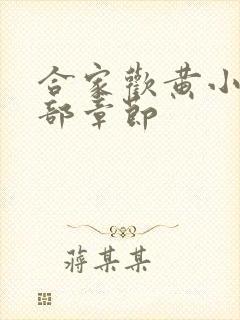 合家歡黄小
部章節
蒋某某